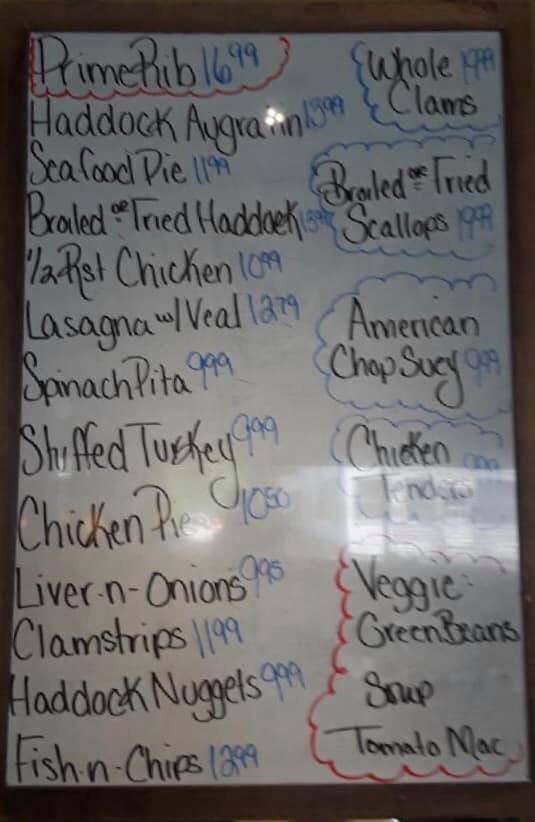 Prime Rib 16 99
Haddock Augratin 13 99
Seafood Pie 11 99
Broiled or Fried Haddock 13 99
1/2 Rst Chicken 10 99
Lasagna w/ Veal 12 79
Spinach Pita 9 99
Stuffed Turkey 9 99
Chicken Pie 10 50
Liver-n-Onions 9 95
Clamstrips 11 99
Haddock Nuggets 9 99
Fish-n-Chips 12 99
Whole 19 99
Clams
Broiled or Fried
Scallops 19 99
American
Chop Suey 9 99
Chicken 9 99
Tenders
Veggie:
Green Beans
Soup
Tomato Mac